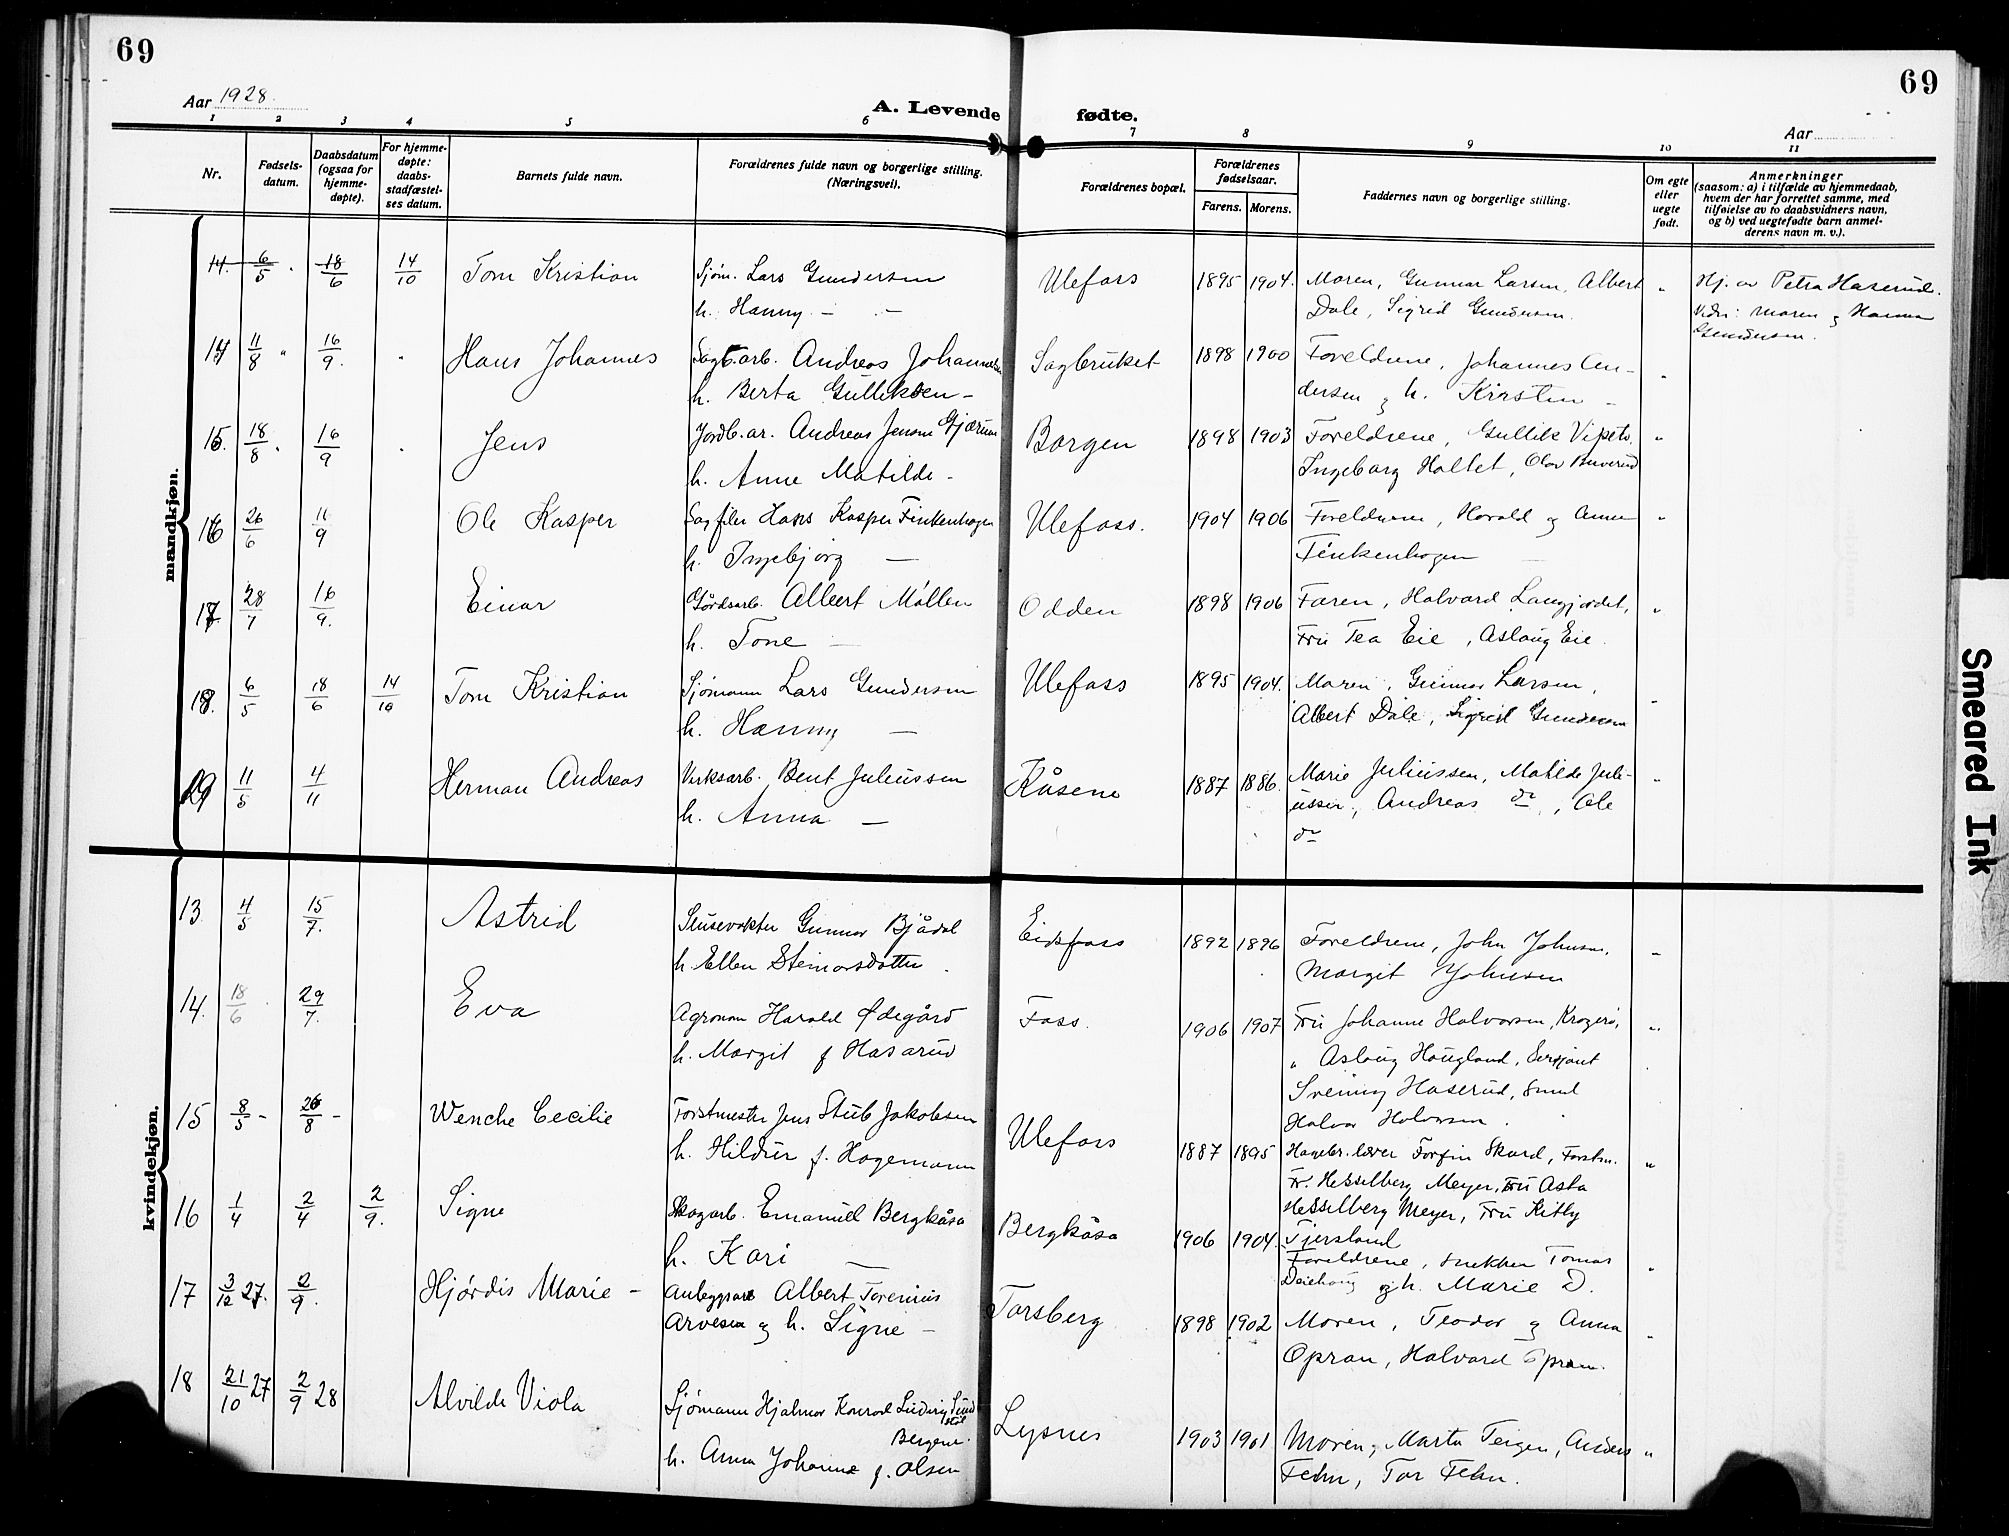 69
69
Aar 1928.
A. Levende fødte.
Aar
1 2 3 4 5 6 7 8 9 10 11
Nr.
Fødsels-
datum.
Daabsdatum
(ogsaa for
hjemme-
døpte).
For hjemme-
døpte:
daabs-
stadfæstel-
ses datum.
Barnets fulde navn.
Forældrenes fulde navn og borgerlige stilling.
(Næringsvei).
Forældrenes bopæl.
Forældrenes
fødselsaar.
Farens. Morens.
Faddernes navn og borgerlige stilling.
Om egte
eller
uegte
født.
Anmerkninger
(saasom: a) i tilfælde av hjemmedaab,
hvem der har forrettet samme, med
tilføielse av to daabsvidners navn,
og b) ved uegtefødte barn anmel-
derens navn m. v.).
mandkjøn.
14. 6/5 18/6 14/10 Tom Kristian Sjøm. Lars Gundersen Ulefoss 1895 1904. Moren, Gunnar Larsen, Albert " Hj. av Petra Haserud.
h. Hanny - - Dale, Sigrid Gundersen. Vidn: Moren og Hanna
Gundersen.
14 11/8 " 16/9. " Hans Johannes Sagb.arb. Andreas Johannessen Sagbruket 1898 1900 Foreldrene, Johannes An- "
h. Berta Gulliksen - dersen og h. Kirsten -
15. 18/8 . 16/9 . Jens Jordb.ar. Andreas Jensen Gjærum Borgen 1898 1903 Foreldrene, Gullik Vipeto. "
h. Anne Matilde - Ingeborg Holtet, Olav Buverud
16 26/6 11/9 Ole Kasper Sagfiler Hans Kasper Finkenhagen Ulefoss. 1904 1906 Foreldrene, Harald og Anna "
h. Ingebjørg - Finkenhagen
17. 28/7 16/9. Einar Gårdsarb. Albert Møllen Odden 1898 1906 Faren, Halvard Langjordet, "
h. Tone - Fru Tea Eie, Aslaug Eie.
18. 6/5 18/6 14/10 Tom Kristian Sjømann Lars Gundersen Ulefoss 1895 1904. Moren, Gunnar Larsen, "
h. Hanny - Albert Dale, Sigrid Gundersen
19 11/5 4/11 Herman Andreas Verksarb. Bent Juliussen Kåsene 1887 1886. Marie Juliussen, Matilde Juli- "
h. Anna - ussen, Andreas do, Ole
do
kvindekjøn.
13 4/5 15/7. Astrid Slusevokter Gunnar Bjådal Eidsfoss 1892 1896 Foreldrene, John Johnsen, "
h. Ellen Steinarsdotter. Margit Johnsen
14. 18/6 29/7. Eva Agronom Harald Ødegård Foss. 1906 1907 Fru Johanne Halvorsen, Kragerø, "
h. Margit f Hasarud " Aslaug Haugland, Sersjant
Sveinung Haserud, Smed
Halvor Halvorsen.
15 8/5 - 26/8 - Wenche Cecilie Forstmester Jens Stub Jakobsen Ulefoss 1887 1895 Hagebr.lærer Torfin Skard, Forstm. "
h. Hildur f. Hagemann Fr. Hesselberg Meyer, Fru Asta
Hesselberg Meyer, Fru Kitty
Tjersland
16 1/4 2/4 2/9. Signe Skogarb. Emanuel Bergkåsa Bergkåsa 1906 1904. Foreldrene, Snekker Tomas "
h. Kari - og h. Marie D.
17 3/12 27. 2/9. Hjørdis Marie - Anleggsarb Albert Torenius Torsberg 1898 1902 Moren, Teodor og Anna "
Arvesen og h. Signe - Opran, Halvard Opran.
18 21/10 27 2/9 28 Alvilde Viola Sjømann Hjalmar Konrad Ludvig Lysnes 1903 1901 Moren, Marta Teigen, Anders "
Bergene.
h. Anna Johanne f. Olsen Fehn, Tor Fehn.
Smeared Ink